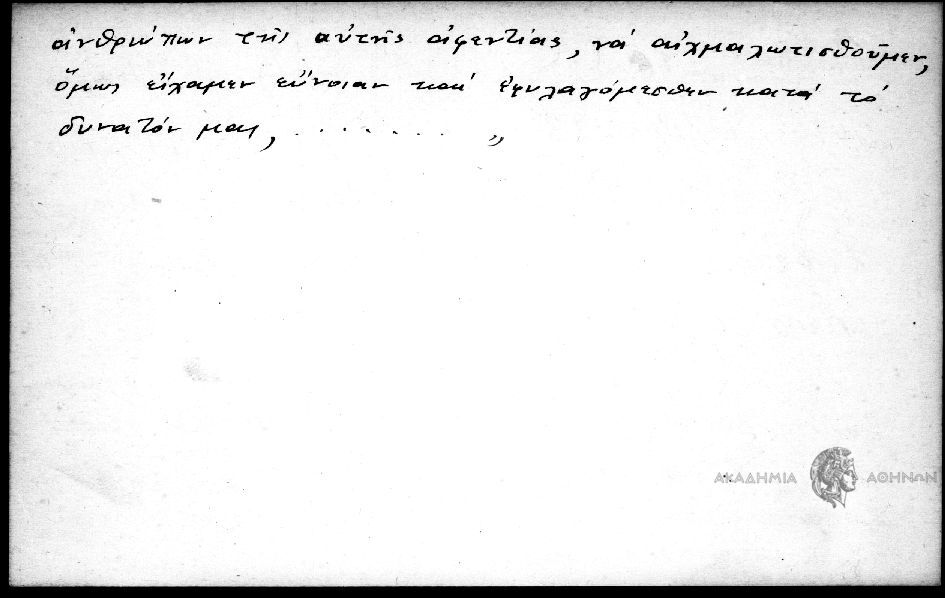 ἀνθρώπων τῆς αὐτῆς ἀφεντίας, νά αἰχμαλωτισθοῦμεν,
ὅμως εἴχαμεν εὔνοιαν καί ἐφυλαγόμεσθεν κατά τό
δυνατόν μας, . . . . . . . "
ΑΚΑΔΗΜΙΑ ΑΘΗΝΩΝ